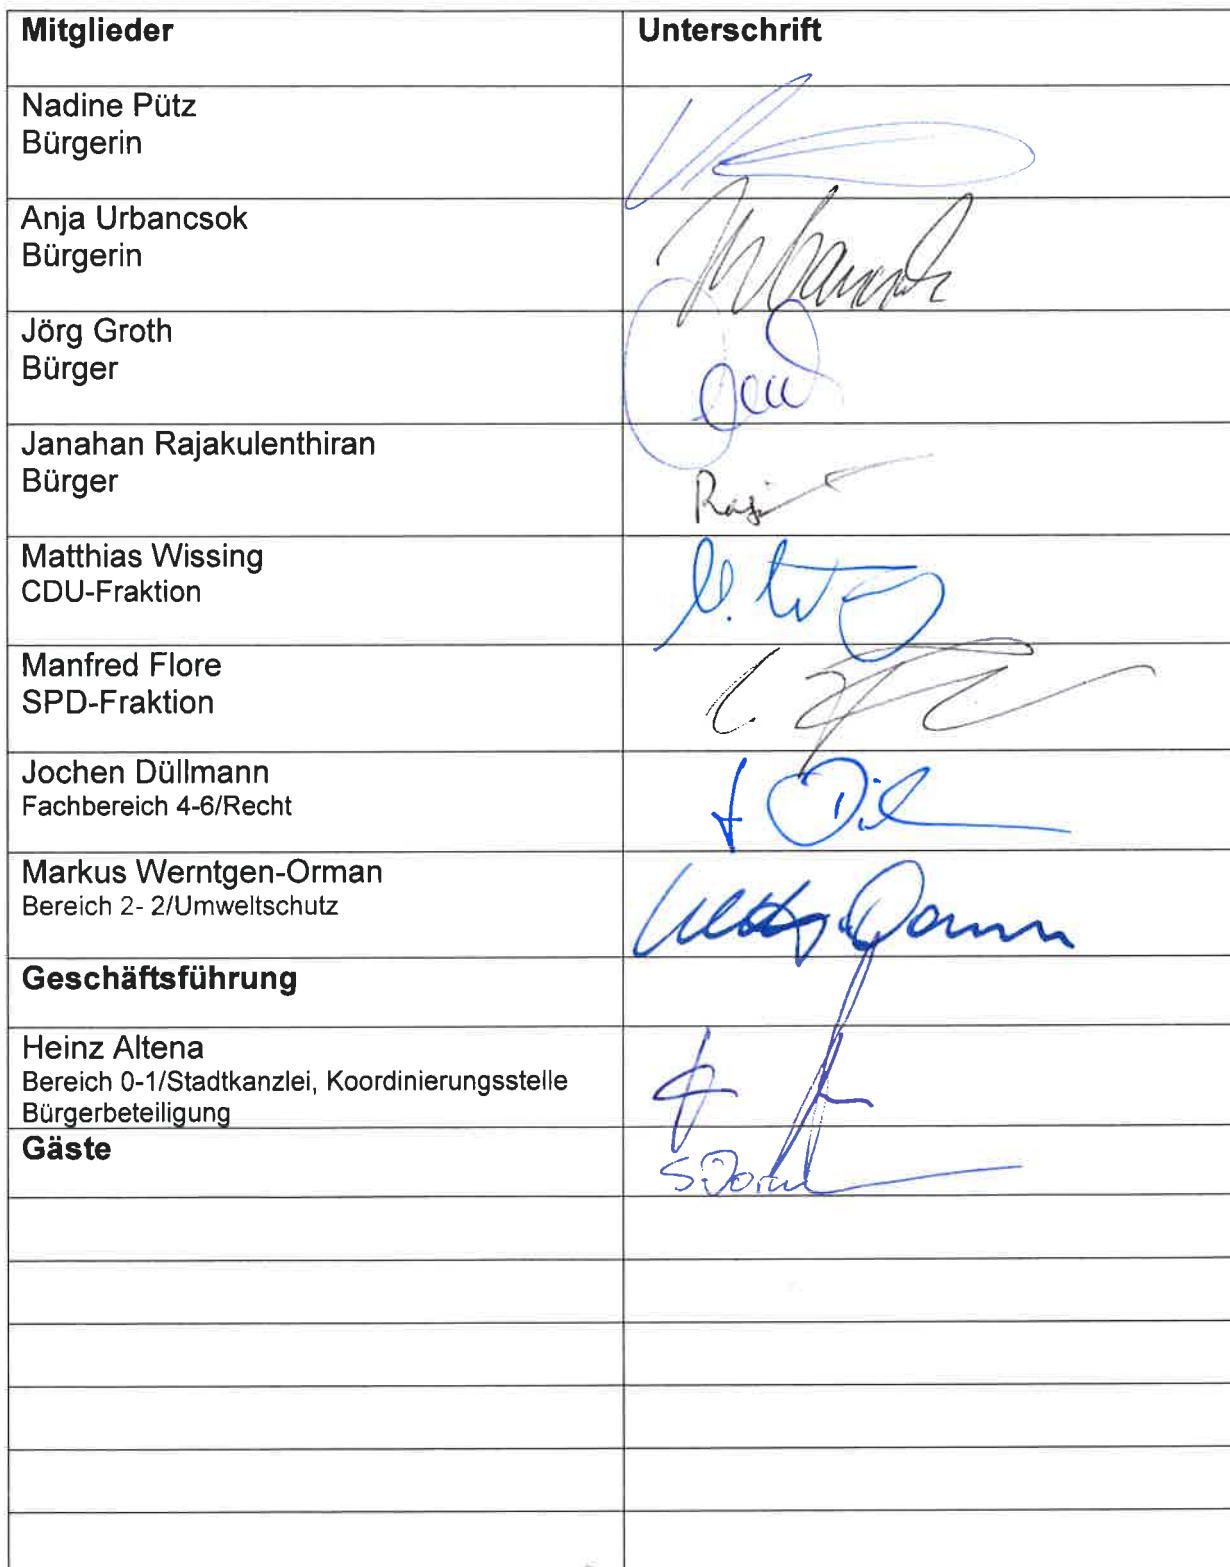 Mitglieder Unterschrift
Nadine Pütz
Bürgerin
Anja Urbancsok
Bürgerin
Jörg Groth
Bürger
Janahan Rajakulenthiran
Bürger
Matthias Wissing
CDU-Fraktion
Manfred Flore
SPD-Fraktion
Jochen Düllmann
Fachbereich 4-6/Recht
Markus Werntgen-Orman
Bereich 2- 2/Umweltschutz
Geschäftsführung
Heinz Altena
Bereich 0-1/Stadtkanzlei, Koordinierungsstelle
Bürgerbeteiligung
Gäste